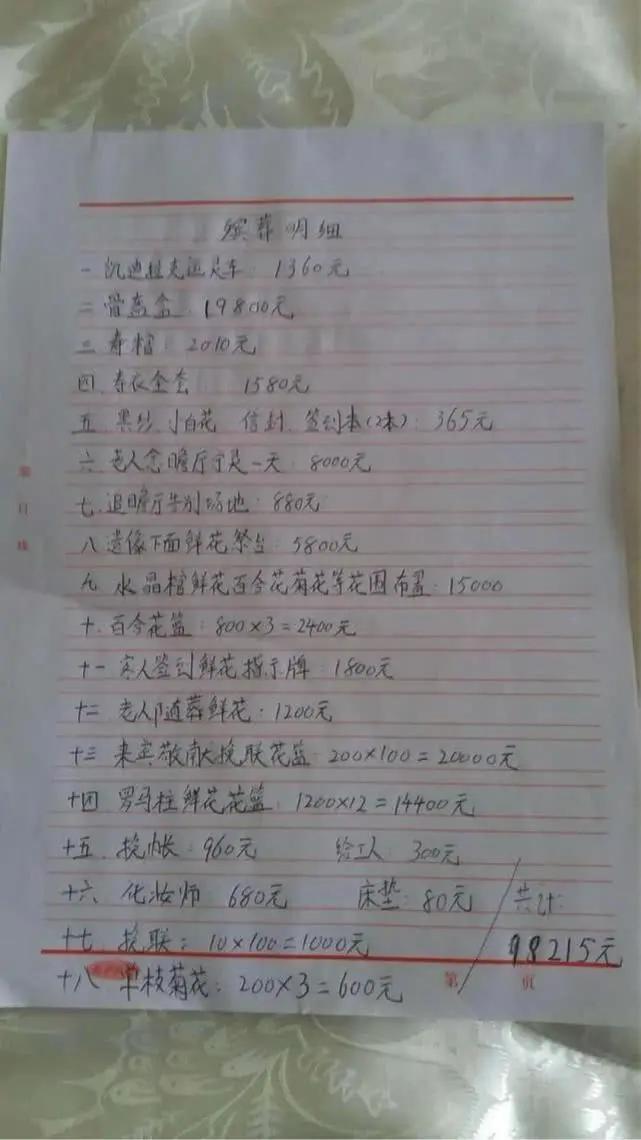 殡葬明细
一 凯迪拉克运灵车：1360元
二 骨灰盒：19800元
三 寿棺：2010元
四. 寿衣全套 1580元
五 黑纱 小白花 信封、签到本(2本)：365元
六 老人念瞻厅守灵一天：8000元
七. 追瞻厅告别场地：880元
八 遗像下面鲜花祭台：5800元
九 水晶棺鲜花百合花菊花等花圈布置：15000
十. 百合花篮：800×3=2400元
十一 来人签到鲜花指示牌：1800元
十二 老人随葬鲜花：1200元
十三 来宾敬献挽联花篮：200×100=20000元
十四 罗马柱鲜花花篮：1200×12=14400元
十五. 挽帐：960元 给工人：300元
十六 化妆师 680元 床垫：80元 共计：
十七 挽联：10×100=1000元 98215元
十八 单枝菊花：200×3=600元 第 页